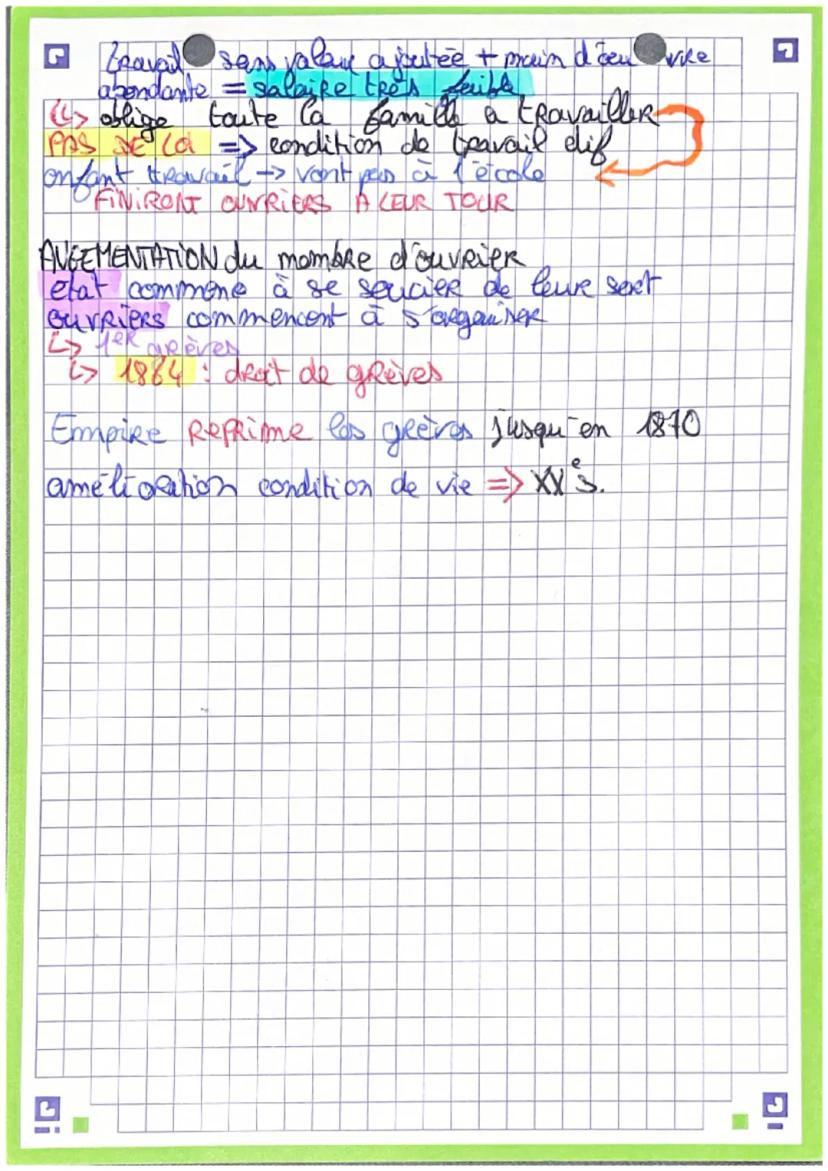 travail sans valeur ajoutée + main d'œuvre
abondante = salaire très faible
(↳ oblige toute la famille a travailler
PAS DE LOI => condition de travail dif
enfant travail -> vont pas à l'école
FINIRONT OUVRIERS A LEUR TOUR
AUGEMENTATION du nombre d'ouvrier
etat commence à se soucier de leure sort
ouvriers commencent à s'organiser
↳ 1ER grèves
↳ 1864 : droit de grèves
Empire REPRIME les grèves jusqu'en 1870
amélioration condition de vie => XXe s.